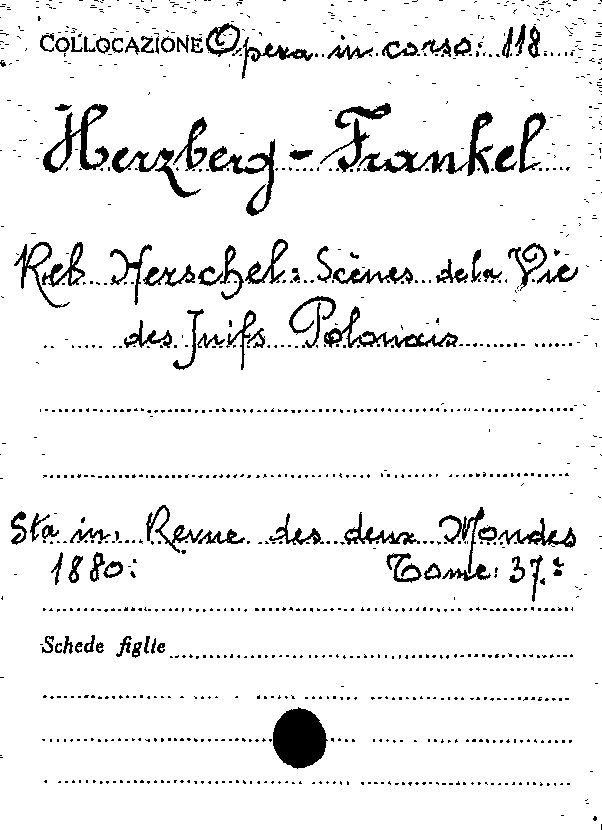 COLLOCAZIONE Opera in corso: 118
Herzberg - Frankel
Reb Herschel: Scènes de la Vie
des Juifs Polonais
Sta in: Revue des deux Mondes
1880: Tome: 37.º
Schede figlie